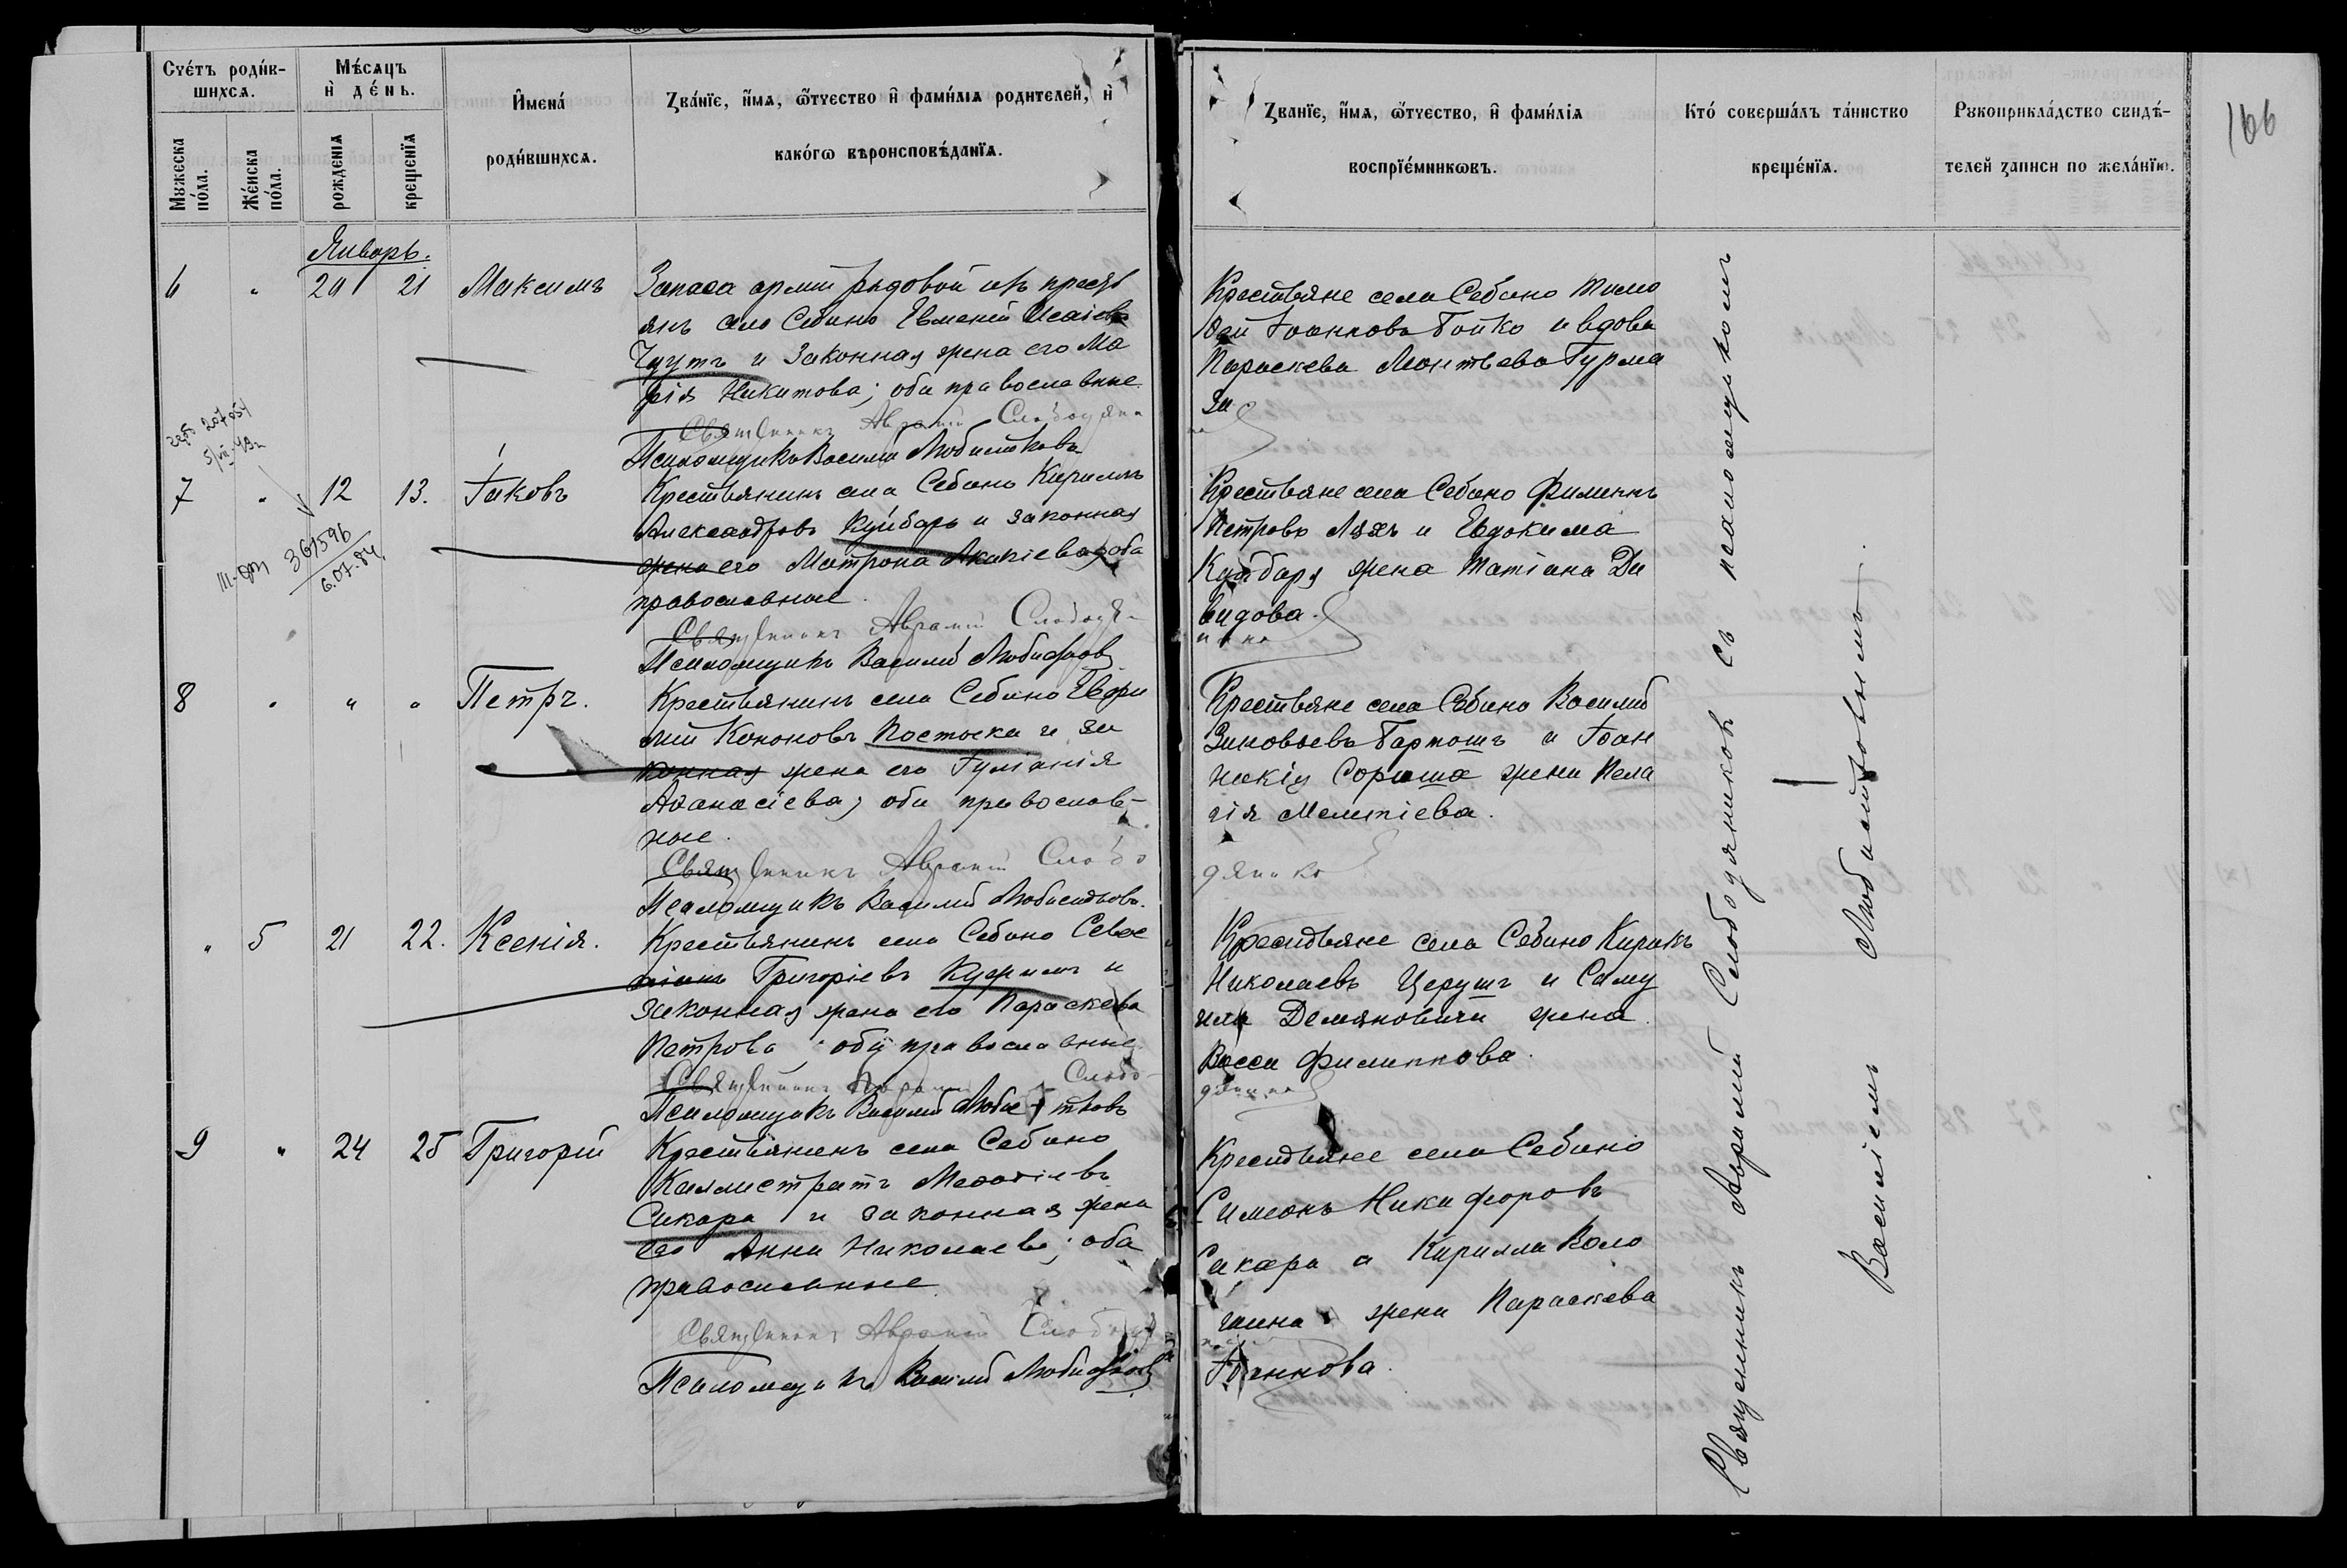 Счетъ родив-
шихся.
Мѣсяцъ
и день.
Мужеска
пола.
Женска
пола.
рожденія
крещенія
Имена
родившихся.
Званіе, имя, отчество и фамилія родителей, и
какого вѣроисповѣданія.
Званіе, имя, отчество, и фамилія
воспріемниковъ.
Кто совершалъ таинство
крещенія.
Рукоприкладство свидѣ-
телей записи по желанію.
166
Январь.
6 " 20 21 Максимъ
Запаса арміи рядовой изъ кресть
янъ села Себино Евменій Исаіевъ
и законная жена его Ма
рія Никитова; оба православные
Священникъ Аврамій Слободяни
Псаломщикъ Василій Любистковъ
Крестьяне села Себино Тимо
ѳей Іоанновъ Бойко и вдова
Параскева Леонтьева Гурма
за
207054
7 " 12 13. Іаковъ
361596
6.07.84
Крестьянинъ села Себино Кириллъ
Александровъ Куйбарь и законная
жена его Матрона Акакіева, оба
православные.
Священникъ Аврамій Слободя
Псаломщикъ Василій Любистковъ
Крестьяне села Себино Филиппъ
Петровъ Ляхъ и Евдокима
Куйбаря жена Татіана Да
видова.
8 " " " Петръ.
Крестьянинъ села Себино Евфи
мій Кононовъ Постока и за
конная жена его Іуліанія
Аѳанасіева, оба православ-
ные.
Священникъ Аврамій Слобо
Псаломщикъ Василій Любистковъ.
Крестьяне села Себино Василій
Зиновьевъ Бартошъ и Іоан
никія жена Пела
гія Мелетіева.
дянико
" 5 21 22. Ксенія.
Крестьянинъ села Себино Севас
тіанъ Григоріевъ и
законная жена его Параскева
Петрова; оба православные
Священникъ Аврамій Слобо-
Псаломщикъ Василій Любистковъ
Крестьяне села Себино Кирикъ
Николаевъ Церушъ и Саму
ила Демяновичи жена
Васса Филиппова.
9 " 24 25 Григорій
Крестьянинъ села Себино
Каллистратъ Меѳодіевъ
Сикара и законная жена
его Анна Николаева; оба
православные.
Священникъ Аврамій Слобод
Псаломщикъ Василій Любистковъ
Крестьяне села Себино
Симеонъ Никифоровъ
Сикара и Кирилла Воло
шина жена Параскева
Іоаннова.
Священникъ Аврамій Слободяниковъ съ псаломщикомъ
Василіемъ Любистковымъ.